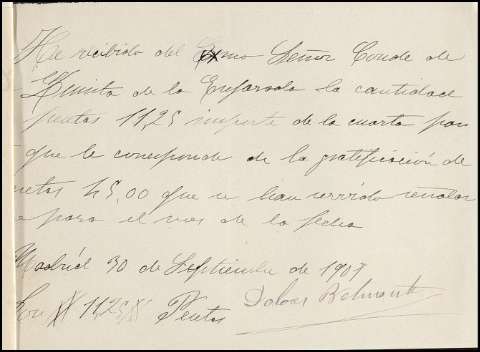 He recibido del Exmo Señor Conde de
de la cantidad
pesetas 11,25 importe de la cuarta par
que le corresponde de la gratificación de
setas 45,00 que se han servido señalar
para el mes de la fecha
Madrid 30 de Septiembre de 1907
Son 11,25 Pesetas Dolores Belmonte